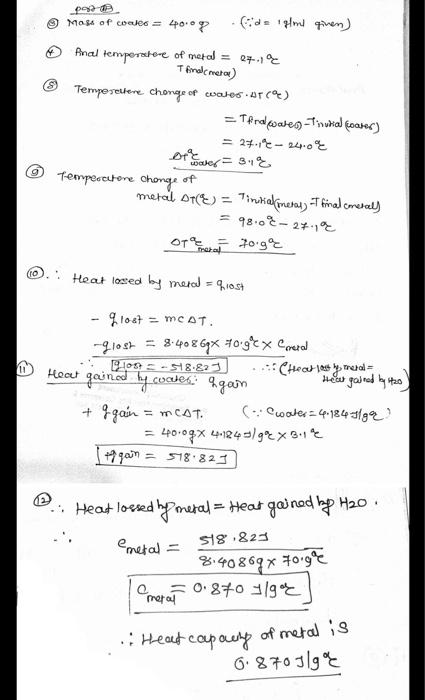 part B
③ Mass of water = 40.0g (∵ d = 1g/ml given)
④ Final temperature of metal = 27.1°C
Tfinal(metal)
⑧ Temperature change of water. ΔT(°C)
= Tfinal(water) - Tinitial(water)
= 27.1°C - 24.0°C
ΔT°C water = 3.1°C
⑨ Temperature change of
metal ΔT(°C) = Tinitial(metal) - Tfinal(metal)
= 98.0°C - 27.1°C
ΔT°C metal = 70.9°C
⑩ ∴ Heat lossed by metal = qlost
- qlost = mCΔT.
-qlost = 8.4086g x 70.9°C x Cmetal
qlost = -518.82J ∴ (Heat lost by metal =
Heat gained by H2O)
⑪ Heat gained by water: qgain
+ qgain = mCΔT. (∵ Cwater = 4.184J/g°C)
= 40.0g x 4.184J/g°C x 3.1°C
+qgain = 518.82J
⑫ ∴ Heat lossed by metal = Heat gained by H2O.
∴ Cmetal = 518.82J
8.4086g x 70.9°C
Cmetal = 0.870 J/g°C
∴ Heat capacity of metal is
0.870J/g°C